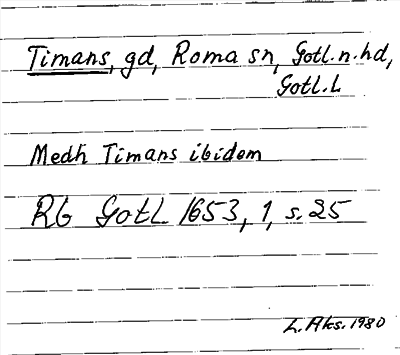 Timans, gd, Roma sn, Gotl.n.hd,
Gotl.L
Medh Timans ibidem
Rb Gotl 1653, 1, s. 25
L. Aks. 1980